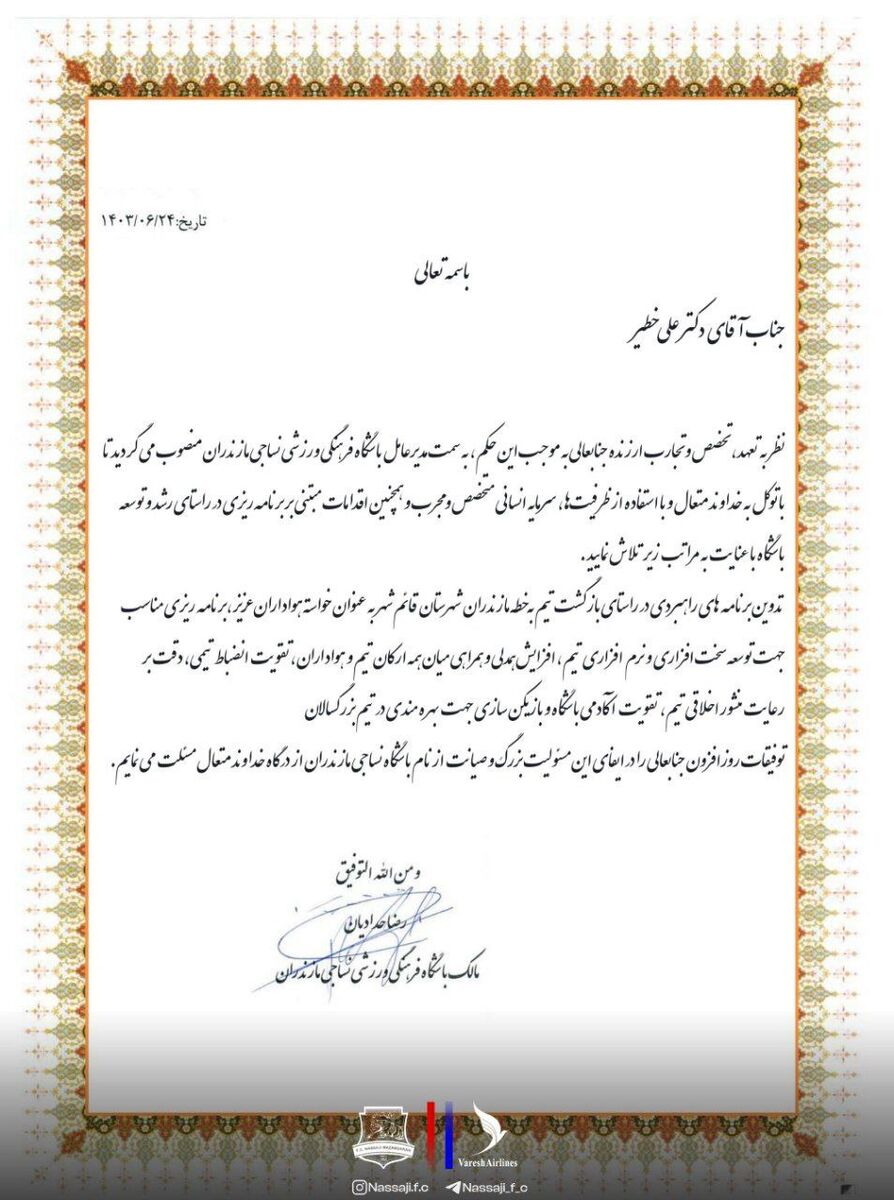 تاریخ:۱۴۰۳/۰۶/۲۴
باسمه تعالی
جناب آقای دکتر علی خطیر
نظر به تعهد، تخصص و تجارب ارزنده جنابعالی به موجب این حکم، به سمت مدیرعامل باشگاه فرهنگی ورزشی نساجی مازندران منصوب می گردید تا
با توکل به خداوند متعال و با استفاده از ظرفیت ها، سرمایه انسانی متخصص و مجرب و همچنین اقدامات مبتنی بر برنامه ریزی در راستای رشد و توسعه
باشگاه با عنایت به مراتب زیر تلاش نمایید.
تدوین برنامه های راهبردی در راستای بازگشت تیم به خطه مازندران شهرستان قائم شهر به عنوان خواسته هواداران عزیز، برنامه ریزی مناسب
جهت توسعه سخت افزاری و نرم افزاری تیم، افزایش همدلی و همراهی میان همه ارکان تیم و هواداران، تقویت انضباط تیمی، دقت بر
رعایت منشور اخلاقی تیم، تقویت آکادمی باشگاه و بازیکن سازی جهت بهره مندی در تیم بزرگسالان
توفیقات روزافزون جنابعالی را در ایفای این مسئولیت بزرگ و صیانت از نام باشگاه نساجی مازندران از درگاه خداوند متعال مسئلت می نمایم.
و من الله التوفیق
رضا حدادیان
مالک باشگاه فرهنگی ورزشی نساجی مازندران
F.C. NASSAJI MAZANDARAN
VareshAirlines
Nassaji.f.c
Nassaji_f_c